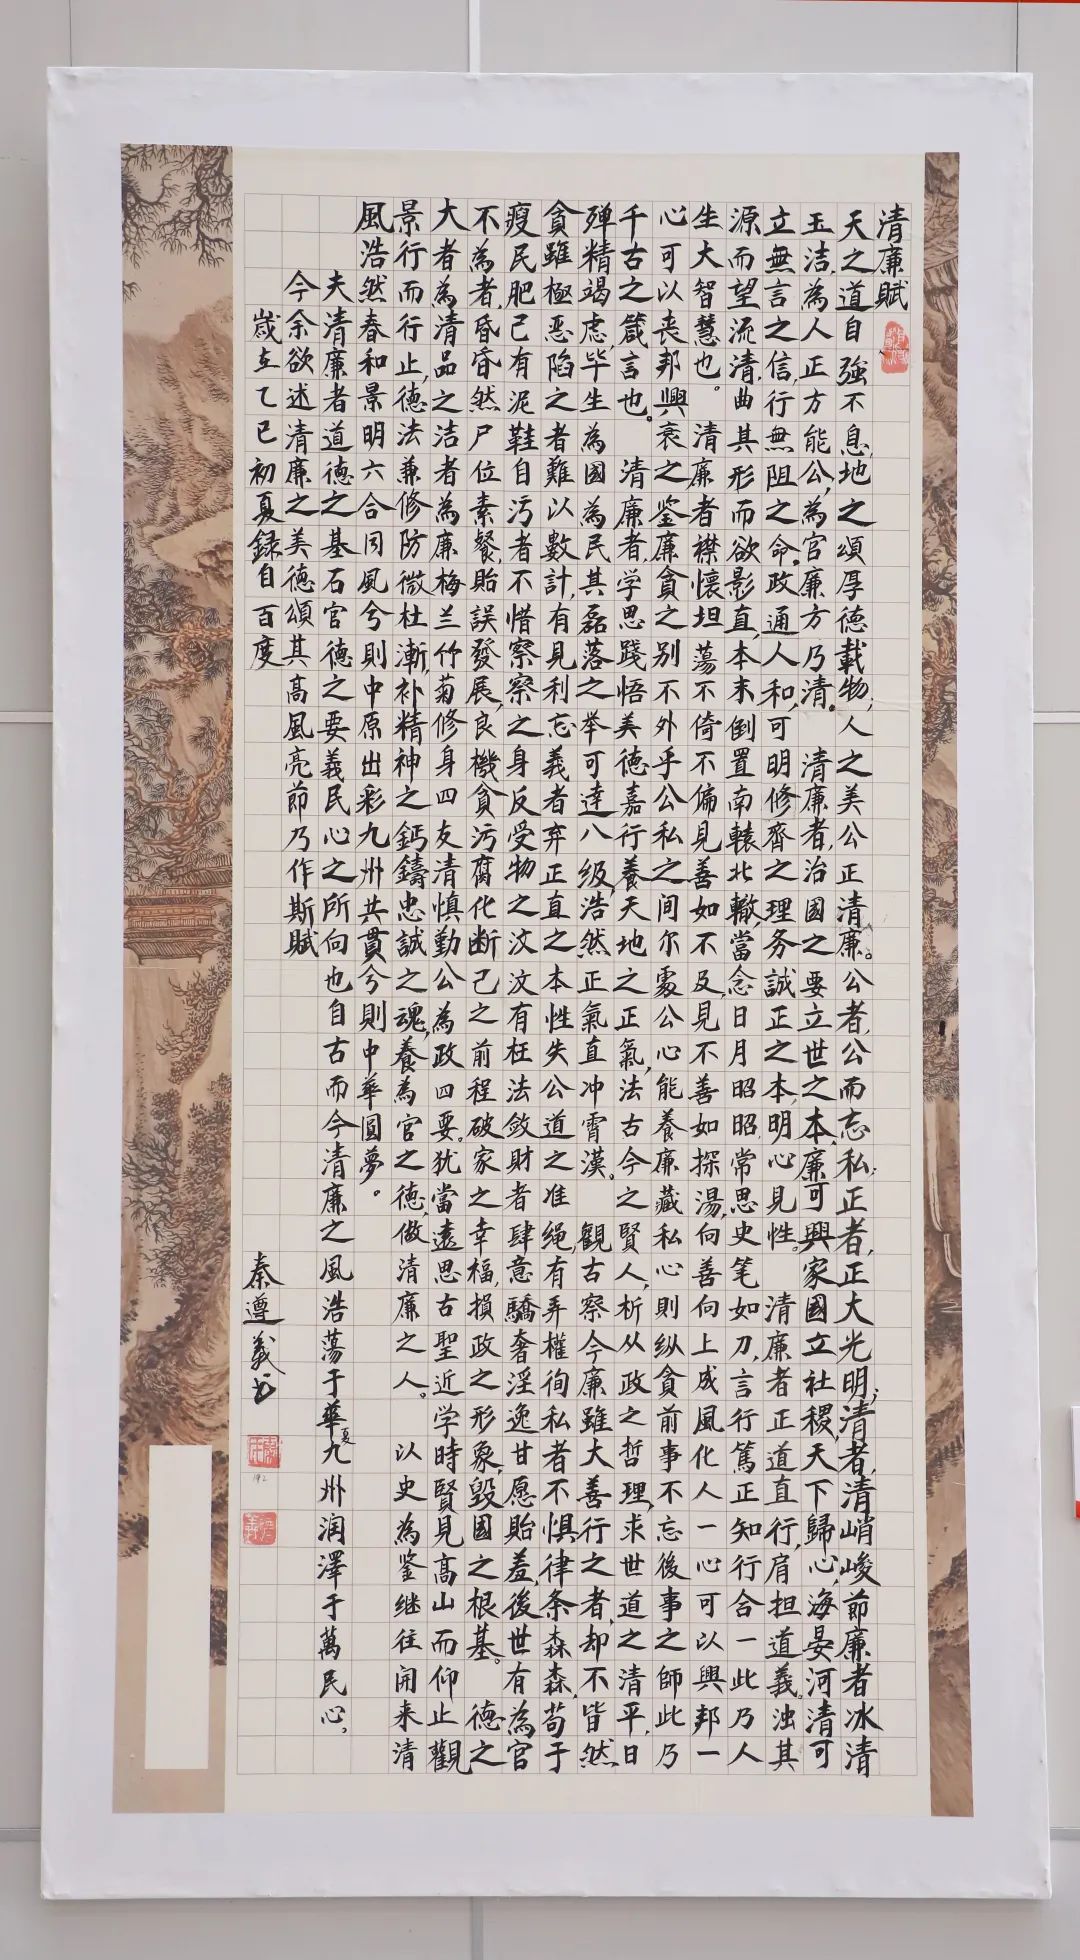 清廉賦
天之道自強不息，地之頌厚德載物，人之美公正清廉。公者，公而忘私；正者，正大光明；清者，清峭峻節廉者冰清
玉洁，為人正方能公，為官廉方乃清。　清廉者，治國之要立世之本，廉可興家國立社稷，天下歸心，海晏河清可
立無言之信，行無阻之命。政通人和，可明修齊之理务誠正之本，明心見性。　清廉者正道直行，肩担道義。浊其
源而望流清，曲其形而欲影直，本末倒置南轅北轍，當念日月昭昭，常思史笔如刀，言行篤正知行合一此乃人
生大智慧也。　清廉者襟懷坦蕩不倚不偏見善如不及，見不善如探湯，向善向上成風化人一心可以興邦一
心可以丧邦興衰之鉴，廉貪之别不外乎公私之间尔處公心能養廉藏私心則纵貪前事不忘後事之師此乃
千古之箴言也。　清廉者，学思踐悟美德嘉行養天地之正氣，法古今之賢人，析从政之哲理，求世道之清平，日
殚精竭虑，毕生為國為民其磊落之举可達八级，浩然正氣直冲霄漢。　觀古察今廉雖大善行之者，却不皆然
貪雖極恶陷之者難以數計，有見利忘義者弃正直之本性失公道之准绳，有弄權徇私者不惧律条森森，苟于
瘦民肥己有泥鞋自污者不惜察察之身反受物之汶汶有枉法敛財者肆意驕奢淫逸甘愿貽羞，後世有為官
不為者，昏昏然尸位素餐，貽誤發展，良機貪污腐化断己之前程破家之幸福，損政之形象，毀國之根基。　德之
大者為清品之洁者為廉梅兰竹菊修身四友清慎勤公為政四要。犹當遠思古聖近学時賢見高山而仰止觀
景行而行止，德法兼修防微杜漸，补精神之鈣鑄忠誠之魂，養為官之德，做清廉之人。　以史為鉴继往開来清
風浩然春和景明六合同風兮則中原出彩九州共貫兮則中華圓夢。
夫清廉者道德之基石官德之要義民心之所向也自古而今清廉之風浩蕩于華夏九州润澤于萬民心，
今余欲述清廉之美德頌其高風亮節乃作斯賦
歲在乙巳初夏録自百度　秦遵義书